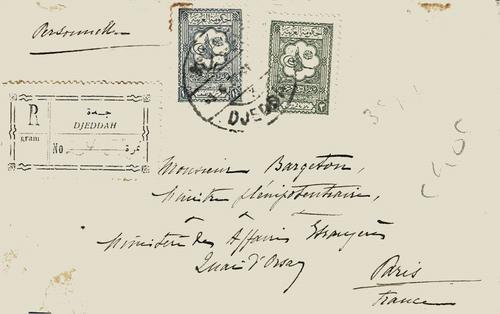 Personnelle
الحكومة العربية
DJEDDAH
R
جدة
DJEDDAH
gram
No
نمرة
Monsieur Bargeton,
Ministre plénipotentiaire,
Ministère des Affaires Etrangères
Quai d'Orsay
Paris
France